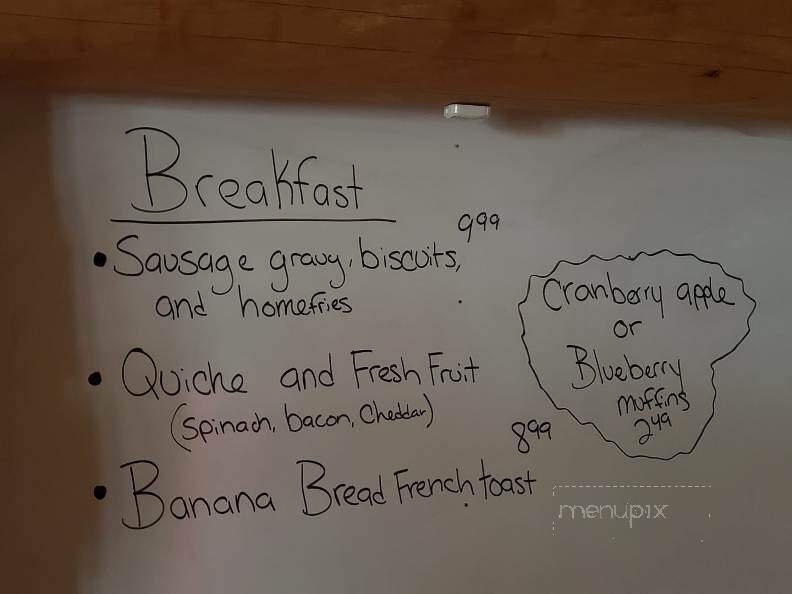 Breakfast
9.99
• Sausage gravy, biscuits,
and homefries
• Quiche and Fresh Fruit
(Spinach, bacon, Cheddar)
8.99
• Banana Bread French toast
Cranberry apple
or
Blueberry
muffins
2.49
menupix